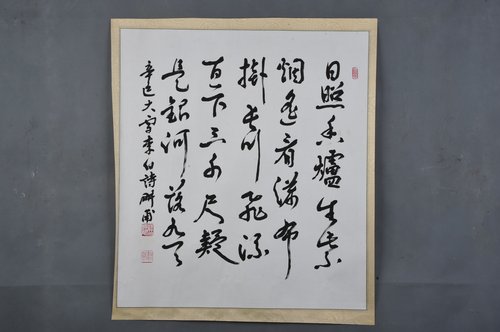 日照香爐生紫
烟遙看瀑布
掛前川飛流
直下三千尺疑
是銀河落九天
辛巳大雪李白詩